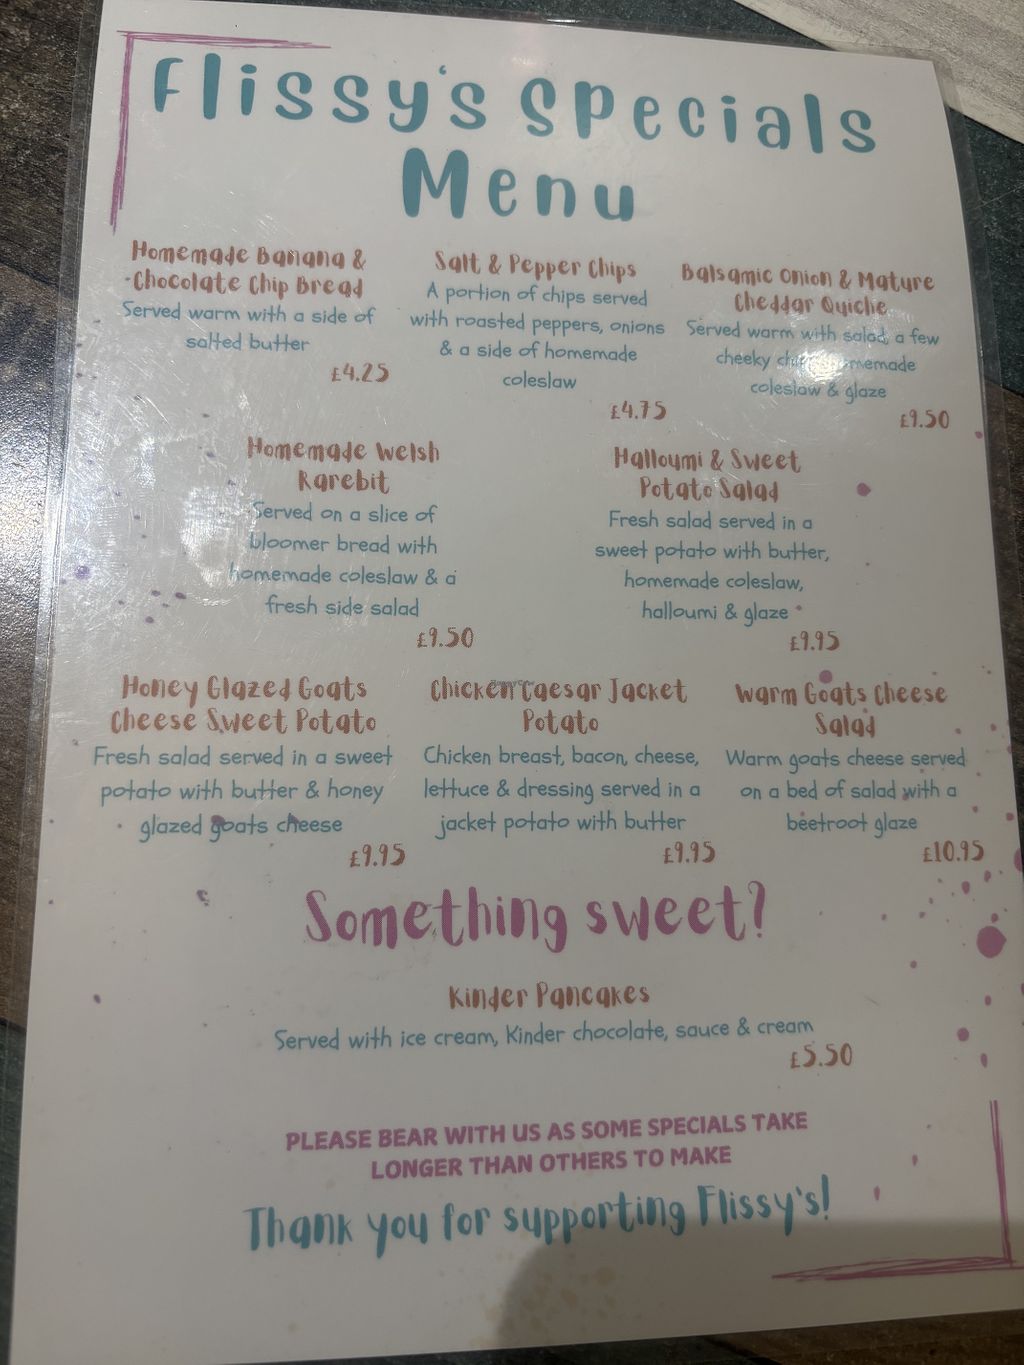 Flissy's Specials
Menu
Homemade Banana &
Chocolate Chip Bread
Served warm with a side of
salted butter
£4.25
Salt & Pepper Chips
A portion of chips served
with roasted peppers, onions
& a side of homemade
coleslaw
£4.75
Balsamic Onion & Mature
Cheddar Quiche
Served warm with salad, a few
cheeky homemade
coleslaw & glaze
£9.50
Homemade Welsh
Rarebit
Served on a slice of
bloomer bread with
homemade coleslaw & a
fresh side salad
£9.50
Halloumi & Sweet
Potato Salad
Fresh salad served in a
sweet potato with butter,
homemade coleslaw,
halloumi & glaze
£9.95
Honey Glazed Goats
Cheese Sweet Potato
Fresh salad served in a sweet
potato with butter & honey
glazed goats cheese
£9.95
Chicken Caesar Jacket
Potato
Chicken breast, bacon, cheese,
lettuce & dressing served in a
jacket potato with butter
£9.95
Warm Goats Cheese
Salad
Warm goats cheese served
on a bed of salad with a
beetroot glaze
£10.95
Something sweet?
Kinder Pancakes
Served with ice cream, Kinder chocolate, sauce & cream
£5.50
PLEASE BEAR WITH US AS SOME SPECIALS TAKE
LONGER THAN OTHERS TO MAKE
Thank you for supporting Flissy's!